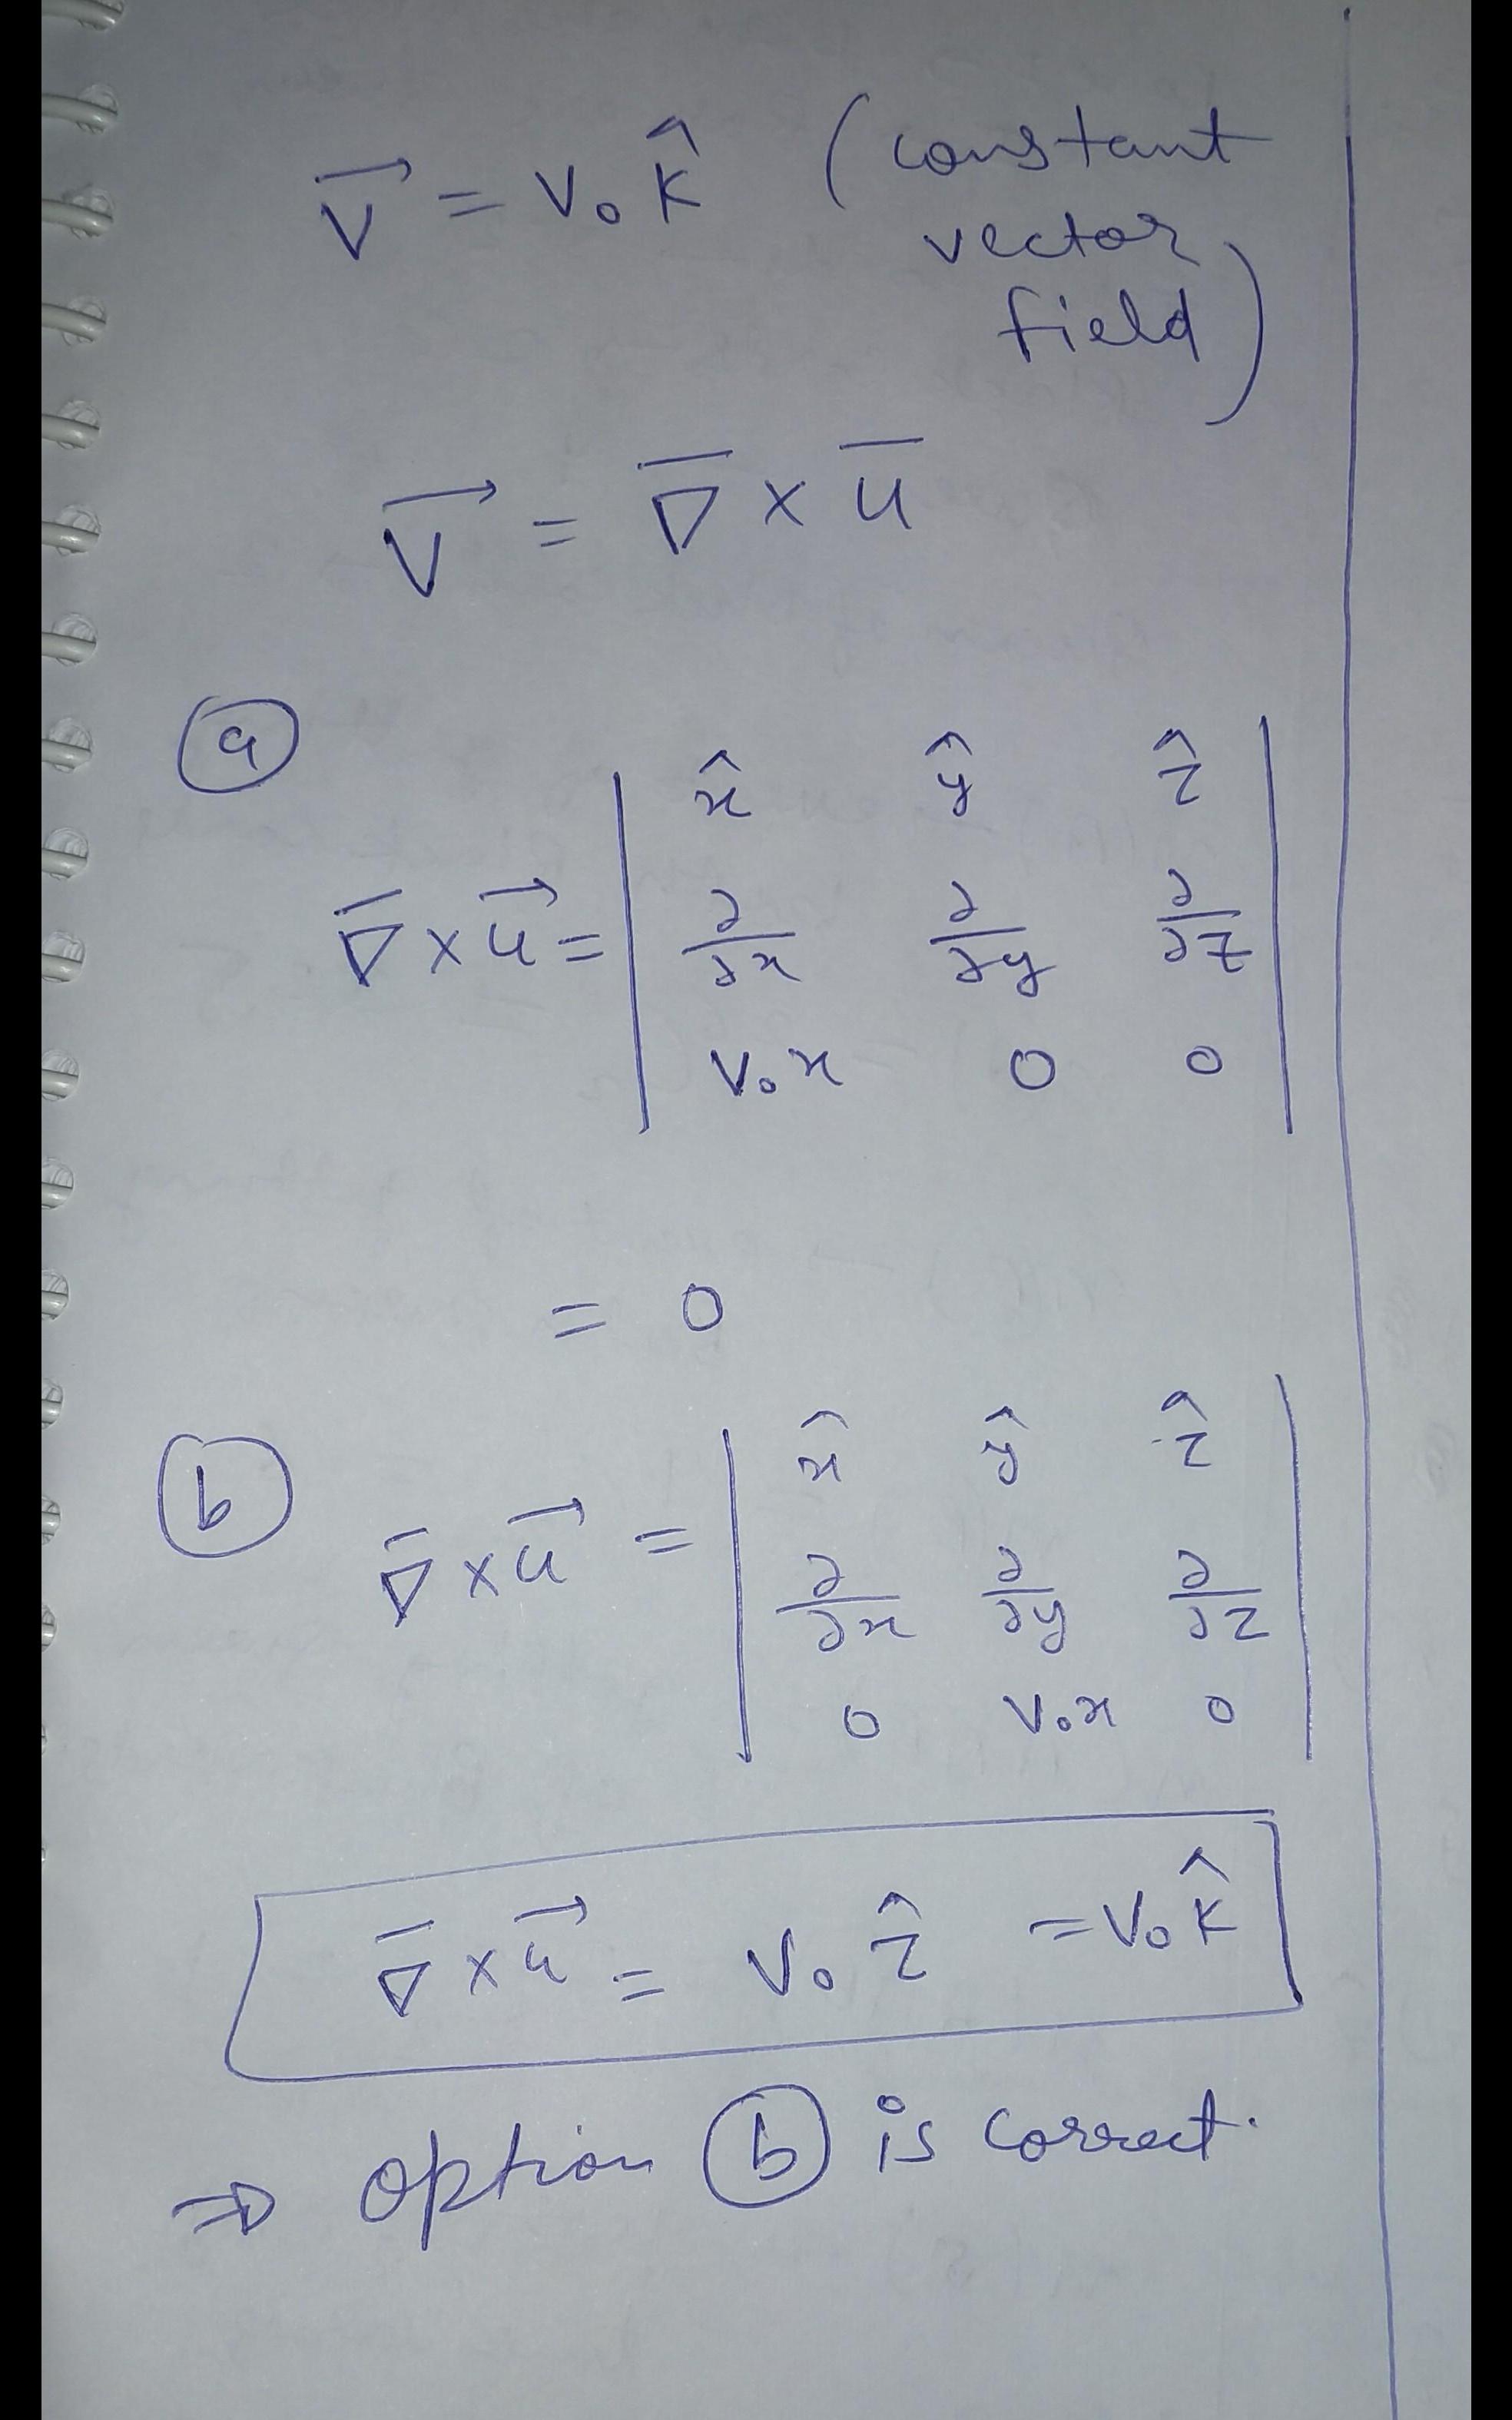 V⃗ = V₀ k̂ (constant
vector
field)
V⃗ = ∇̅ × u̅
(a)
x̂ ŷ ẑ
∇̅ × u⃗ = | ∂/∂x ∂/∂y ∂/∂z |
V₀x 0 0
= 0
(b)
x̂ ŷ ẑ
∇̅ × u⃗ = | ∂/∂x ∂/∂y ∂/∂z |
0 V₀x 0
∇̅ × u⃗ = V₀ ẑ = V₀ k̂
⇒ option (b) is correct.